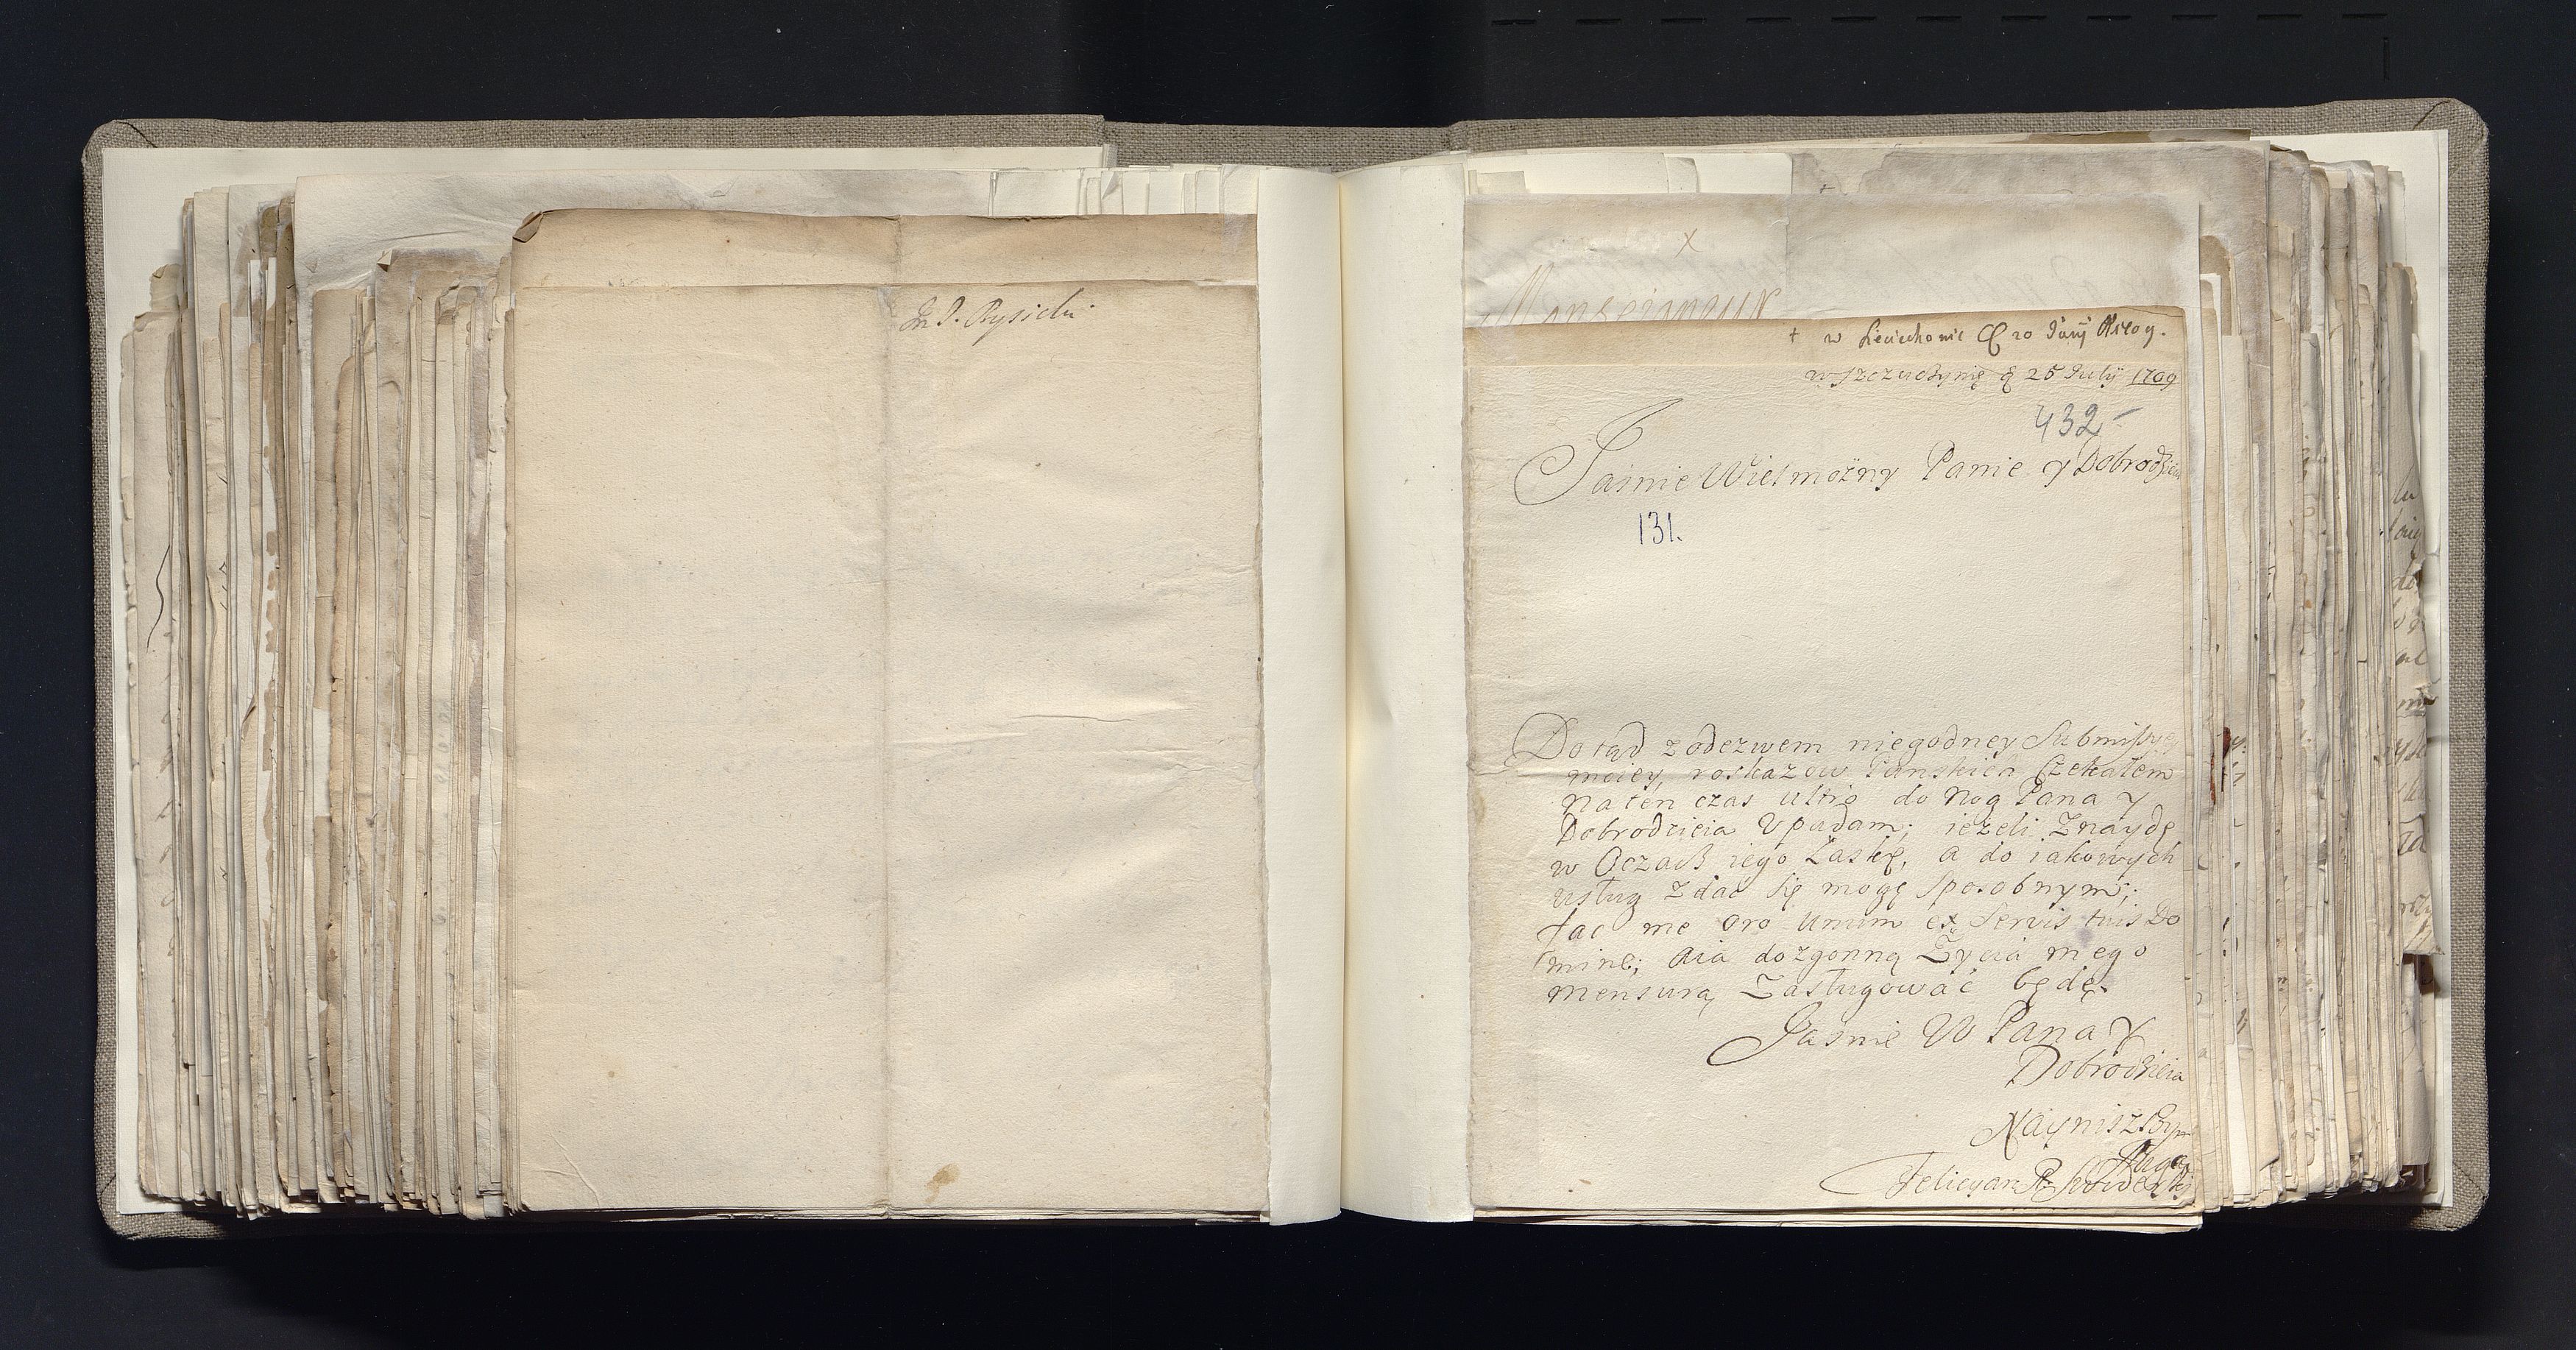 Rysicki
x
Monseigneur
w Szczuczynię d 25 Julÿ 1709
432
Jaśnie Wielmożny Panie y Dobrodzieiu
131.
Dotąd z odezwem niegodney Submissyey
moiey, roskazow Panskich czekałem
Na ten czas ultro do Nog Pana y
Dobrodzieia Vpadam; ieżeli Znaydę
w Oczach iego Łaskę, a do iakowych
usług zdać się mogę sposobnym;
fac me oro Unum ex Servis tuis Do
mine; aia dozgonną Życia mego
mensurą Zasługować będę.
Jaśnie W Pana Y
Dobrodzieia
Nayniszszym
Sługą
Felicyan